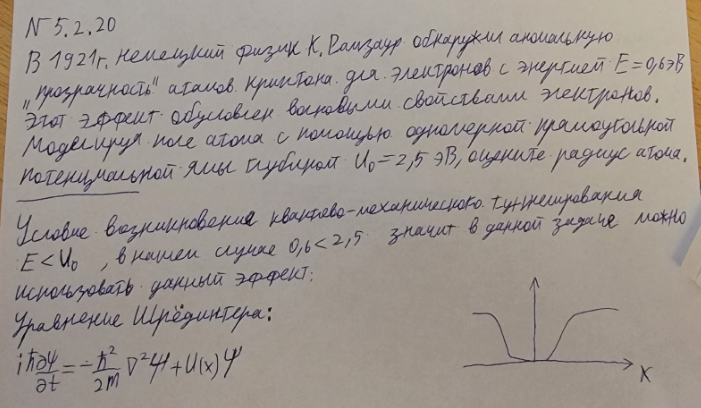 N 5.2.20
В 1921г. немецкий физик К. Рамзаур обнаружил аномальную
"прозрачность" атомов криптона для электронов с энергией E = 0,6 эВ
Этот эффект обусловлен волновыми свойствами электронов.
Моделируя поле атома с помощью одномерной прямоугольной
потенциальной ямы глубиной U₀ = 2,5 эВ, оцените радиус атома.
Условие возникновения квантово-механического туннелирования
E < U₀, в нашем случае 0,6 < 2,5 значит в данной задаче можно
использовать данный эффект:
Уравнение Шрёдингера:
iħ ∂Ψ/∂t = - ħ²/2m ∇²Ψ + U(x)Ψ
x